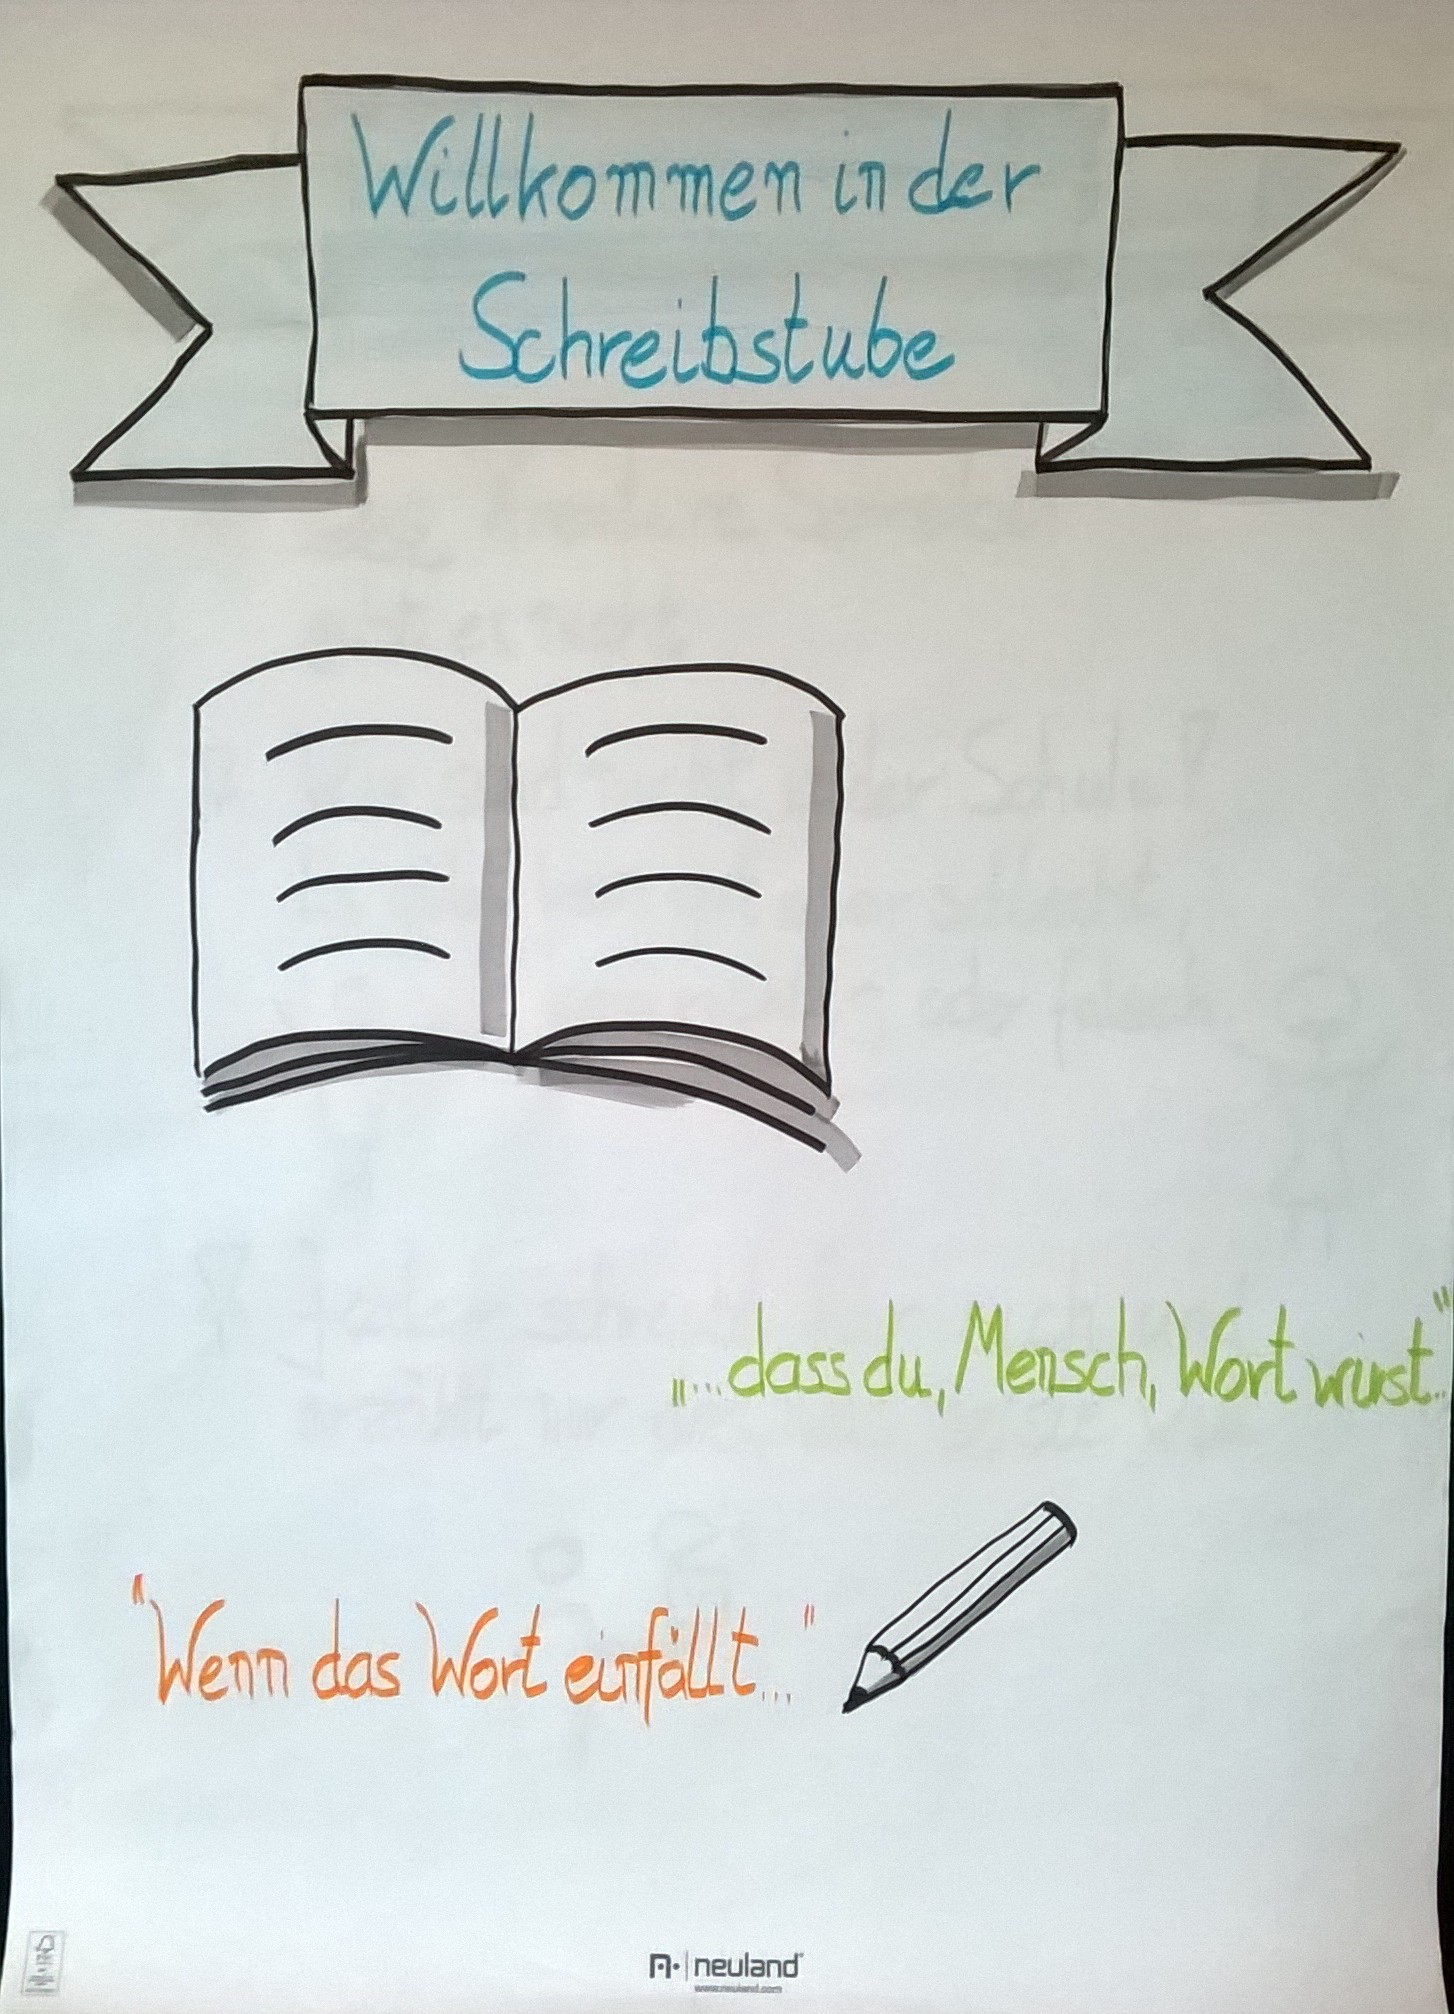 Willkommen in der
Schreibstube
"...dass du, Mensch, Wort wirst..."
"Wenn das Wort einfällt..."
neuland
www.neuland.com